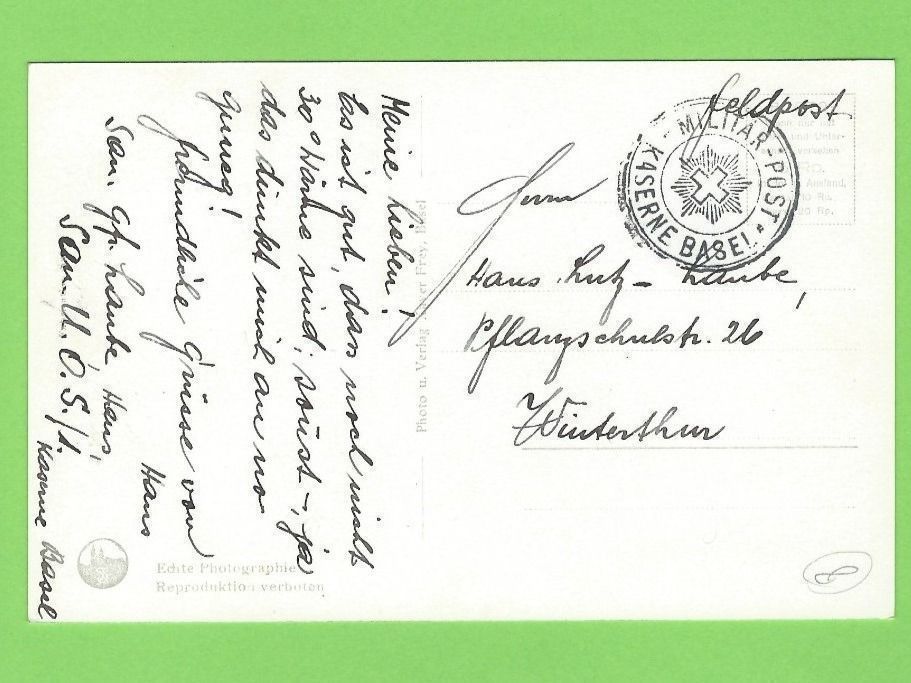 Meine Lieben!
Es ist gut, dass noch nicht
30° Wärme sind, sonst –, ja
das dünkt mich au no
gnueg!
Freundliche Grüsse von
Hans
San. Gfr. Laube, Hans,
San. U.O.S./1.
Kaserne Basel
Echte Photographie
Reproduktion verboten
Photo u. Verlag Frey, Basel
Feldpost
MILITÄR-POST
KASERNE BASEL
Herrn
Hans Lutz – Laube,
Pflanzschulstr. 26
Winterthur